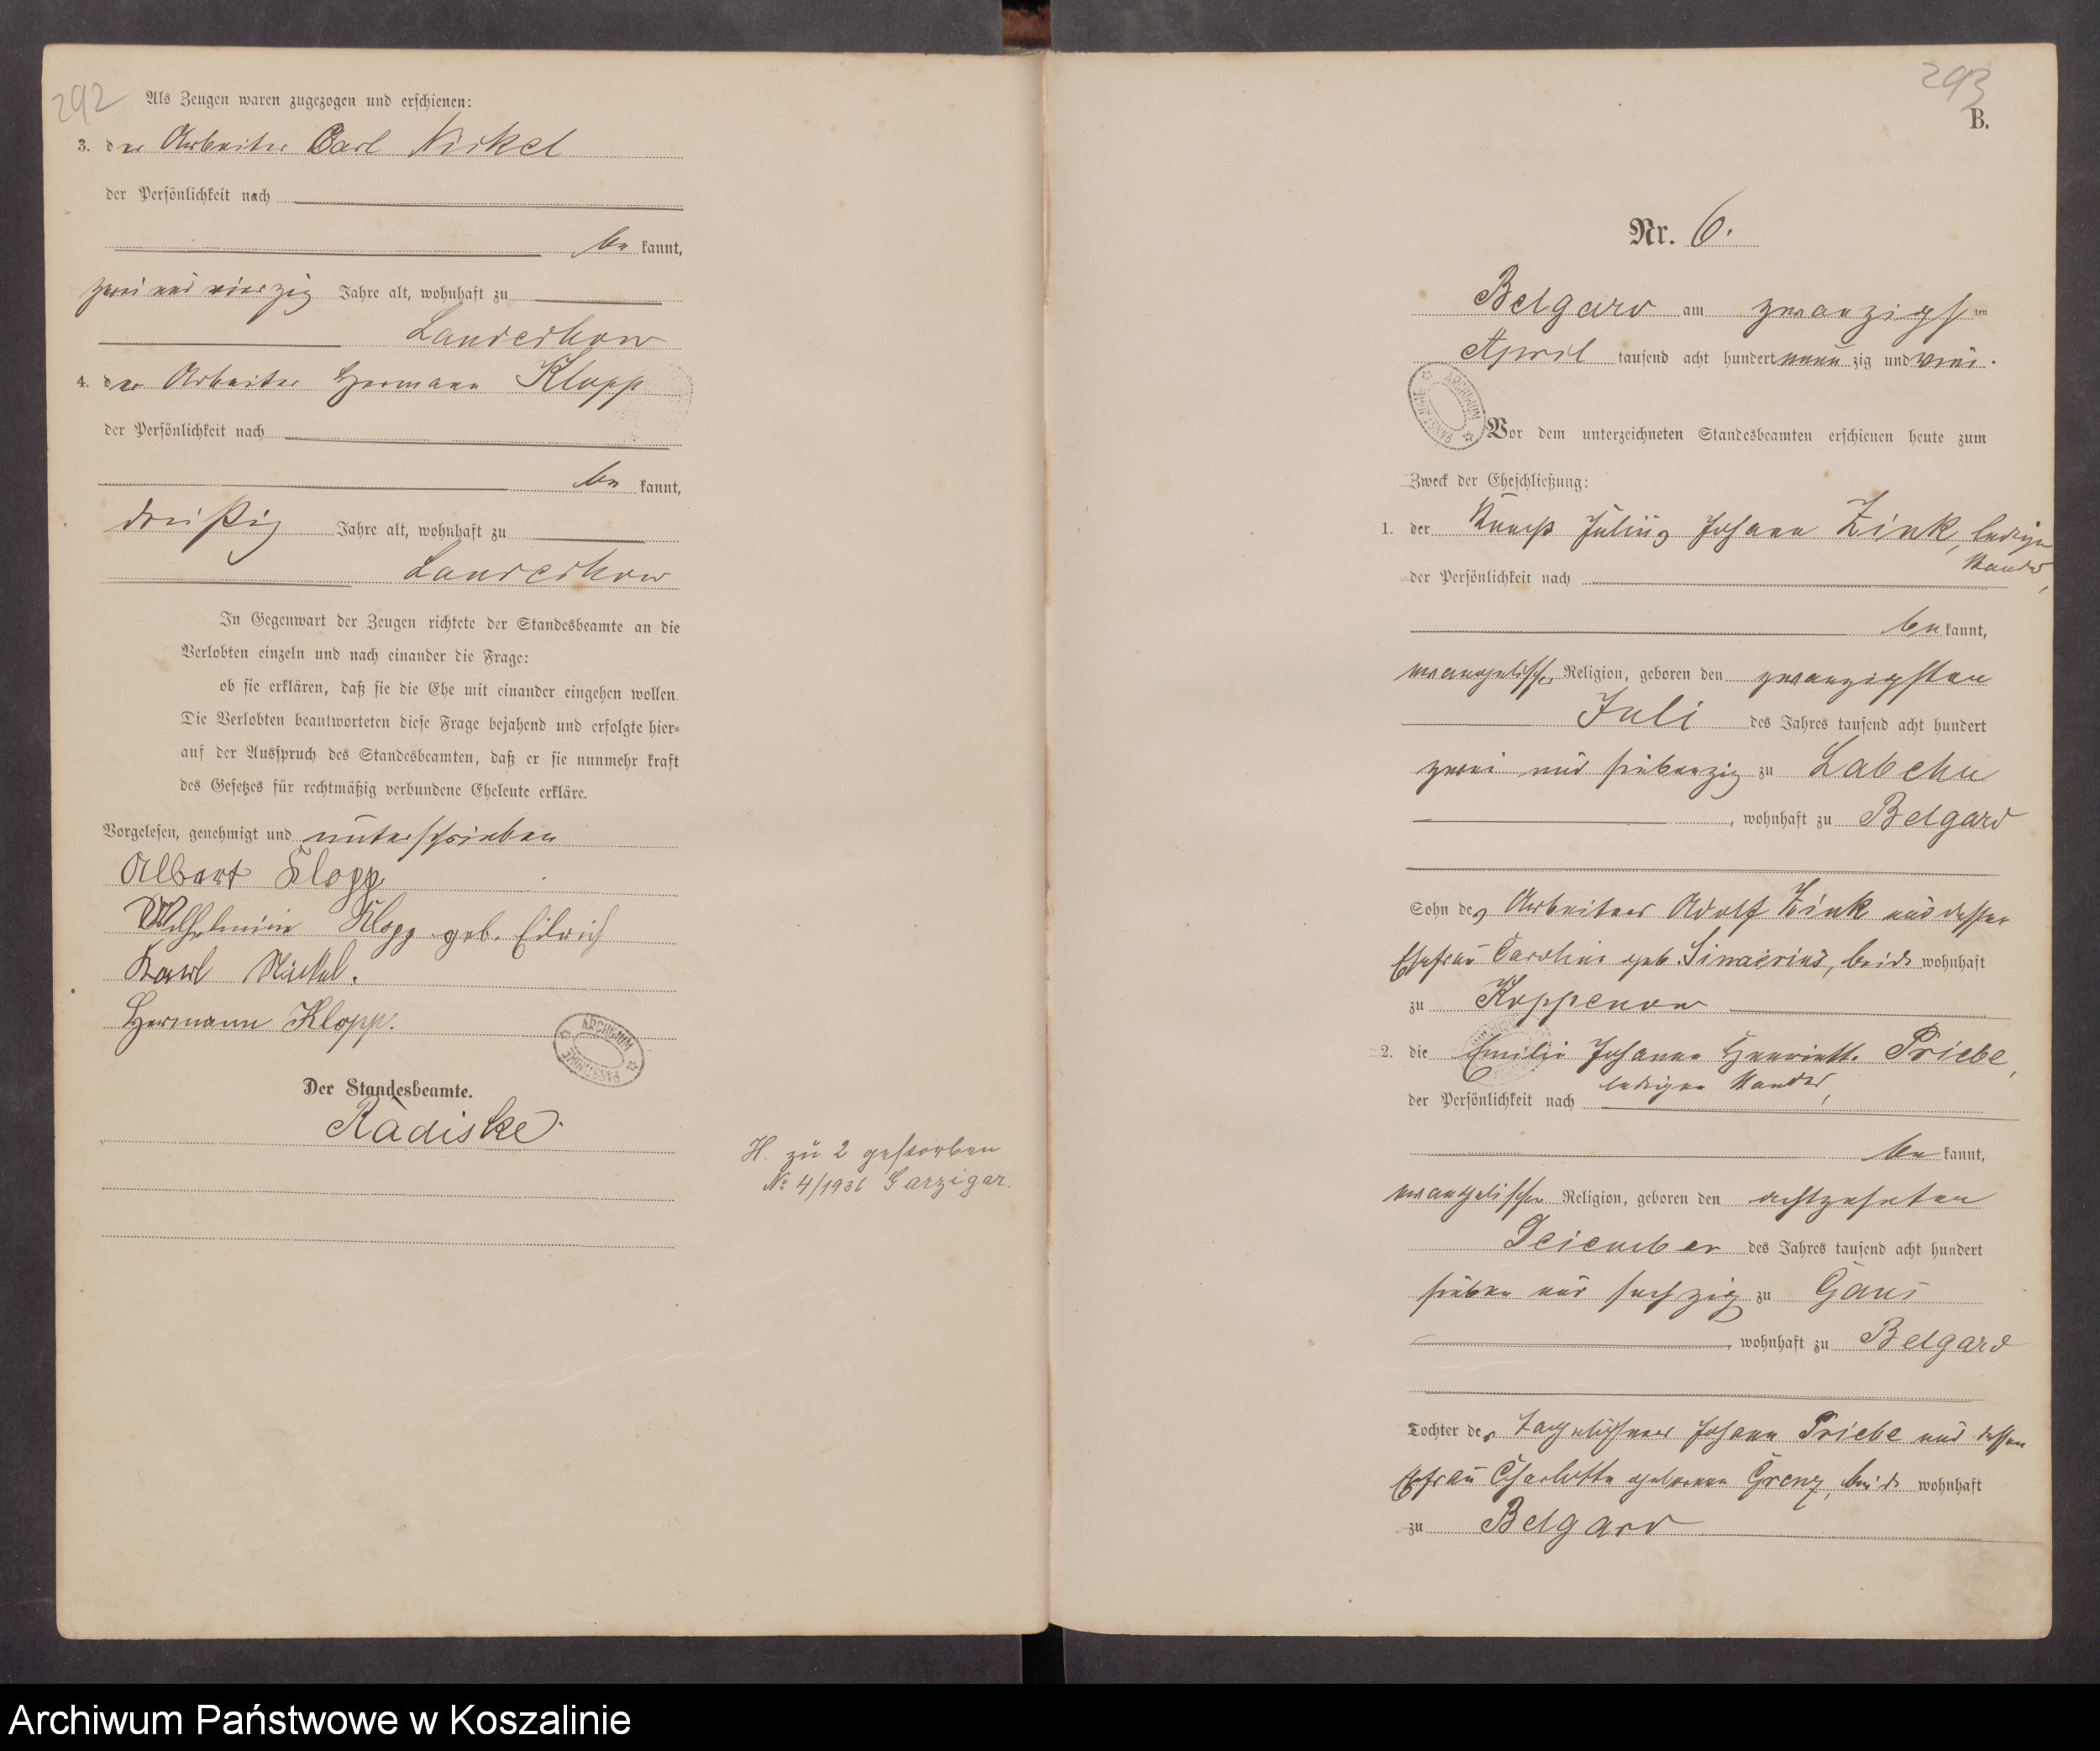 292
Als Zeugen waren zugezogen und erschienen:
3. der Arbeiter Carl Nickel
der Persönlichkeit nach
be kannt,
zwei und vierzig Jahre alt, wohnhaft zu
Landechow
4. der Arbeiter Hermann Klopp
der Persönlichkeit nach
be kannt,
dreißig Jahre alt, wohnhaft zu
Landechow
In Gegenwart der Zeugen richtete der Standesbeamte an die
Verlobten einzeln und nach einander die Frage:
ob sie erklären, daß sie die Ehe mit einander eingehen wollen.
Die Verlobten beantworteten diese Frage bejahend und erfolgte hier=
auf der Ausspruch des Standesbeamten, daß er sie nunmehr kraft
des Gesetzes für rechtmäßig verbundene Eheleute erkläre.
Vorgelesen, genehmigt und unterschrieben
Albert Klopp
Wilhelmine Klopp geb. Eilrich
Karl Nickel.
Hermann Klopp.
ARCHIWUM PAŃSTWOWE
Der Standesbeamte.
Radiske.
H. zu 2 gestorben
No 4/1936 Garzigar.
293
B.
Nr. 6.
Belgard am zwanzigsten
April tausend acht hundert neun zig und
ARCHIWUM PAŃSTWOWE
Vor dem unterzeichneten Standesbeamten erschienen heute zum
Zweck der Eheschließung:
1. der Knecht Julius Johann Zink, ledigen
Standes,
der Persönlichkeit nach
be kannt,
evangelischer Religion, geboren den zwanzigsten
Juli des Jahres tausend acht hundert
zwei und siebenzig zu Labehn
, wohnhaft zu Belgard
Sohn des Arbeiters Adolf Zink und dessen
Ehefrau Caroline geb. beide wohnhaft
zu Koppenow
2. die Emilie Johanna Henriette Priebe,
ledigen Standes,
der Persönlichkeit nach
be kannt,
evangelischer Religion, geboren den achtzehnten
Dezember des Jahres tausend acht hundert
sieben und sechzig zu Gans
, wohnhaft zu Belgard
Tochter des Tagelöhners Johann Priebe und dessen
Ehefrau Charlotte geborenen Grenz, beide wohnhaft
zu Belgard
Archiwum Państwowe w Koszalinie